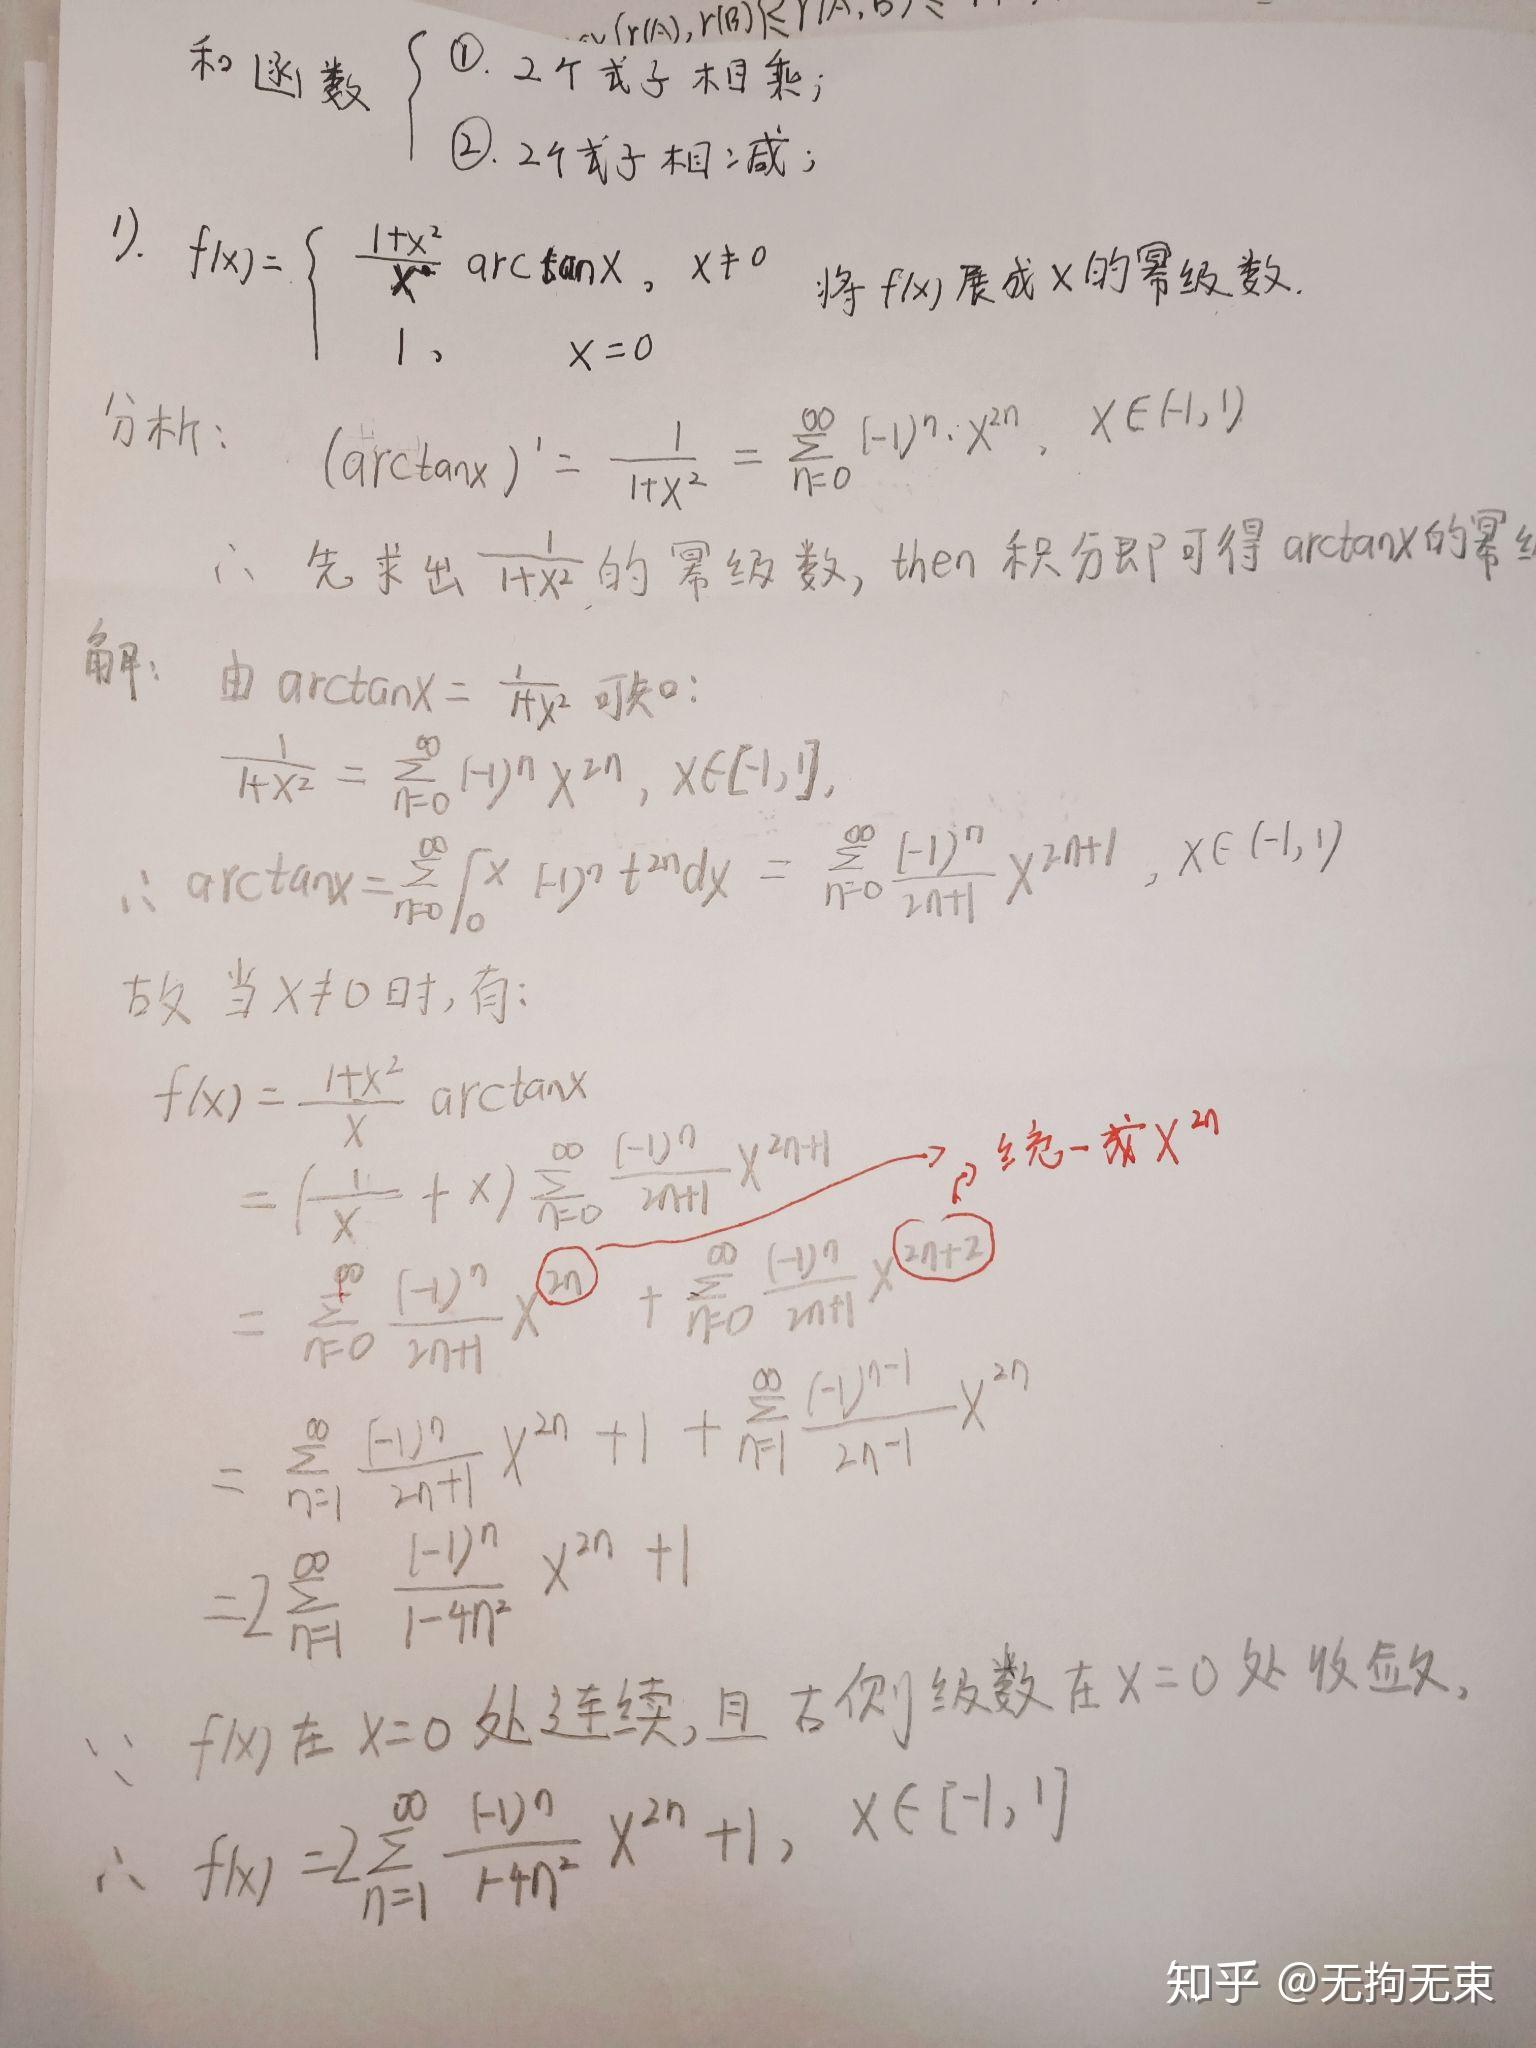 (r(A), r(B)) ≤ r(A, B) ≤
和函数 { ①. 2个式子相乘;
②. 2个式子相减;
1). f(x) = { \frac{1+x^2}{x} arctanx, x≠0 将f(x)展成x的幂级数.
1, x=0
分析: (arctanx)' = \frac{1}{1+x^2} = \sum_{n=0}^{∞} (-1)^n · x^{2n}, x∈(-1,1)
∴ 先求出 \frac{1}{1+x^2} 的幂级数, then 积分即可得arctanx的幂级
解: 由 arctanx = \frac{1}{1+x^2} 可知:
\frac{1}{1+x^2} = \sum_{n=0}^{∞} (-1)^n x^{2n}, x∈[-1,1],
∴ arctanx = \sum_{n=0}^{∞} \int_0^x (-1)^n t^{2n} dx = \sum_{n=0}^{∞} \frac{(-1)^n}{2n+1} x^{2n+1}, x∈(-1,1)
故当x≠0时,有:
f(x) = \frac{1+x^2}{x} arctanx
= (\frac{1}{x} + x) \sum_{n=0}^{∞} \frac{(-1)^n}{2n+1} x^{2n+1} 统一成x^{2n}
= \sum_{n=0}^{+∞} \frac{(-1)^n}{2n+1} x^{2n} + \sum_{n=0}^{∞} \frac{(-1)^n}{2n+1} x^{2n+2}
= \sum_{n=1}^{∞} \frac{(-1)^n}{2n+1} x^{2n} + 1 + \sum_{n=1}^{∞} \frac{(-1)^{n-1}}{2n-1} x^{2n}
= 2\sum_{n=1}^{∞} \frac{(-1)^n}{1-4n^2} x^{2n} + 1
∵ f(x)在x=0处连续,且右侧级数在x=0处收敛,
∴ f(x) = 2\sum_{n=1}^{∞} \frac{(-1)^n}{1-4n^2} x^{2n} + 1, x∈[-1,1]
知乎 @无拘无束